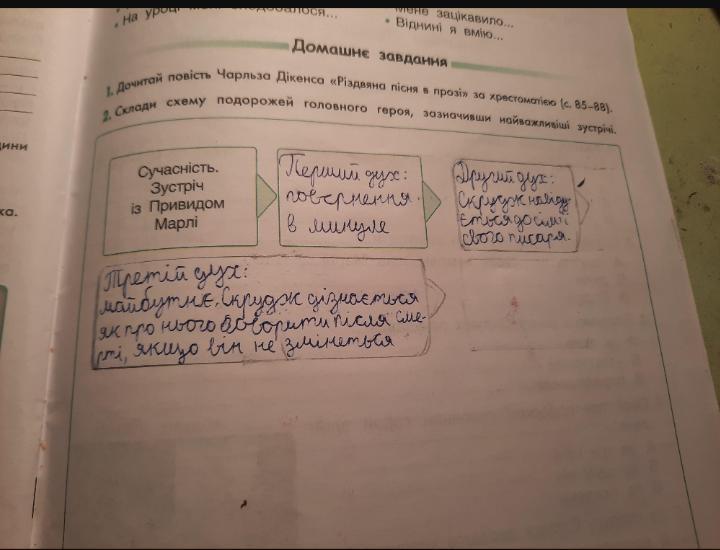 На уроці мені сподобалося...
Мене зацікавило...
• Віднині я вмію...
Домашнє завдання
1. Дочитай повість Чарльза Дікенса «Різдвяна пісня в прозі» за хрестоматією (с. 85–88).
2. Склади схему подорожей головного героя, зазначивши найважливіші зустрічі.
Сучасність.
Зустріч
із Привидом
Марлі
Перший дух:
повернення
в минуле
Другий дух:
Скрудж
ється до сім'ї
свого писаря.
Третій дух:
майбутнє. Скрудж дізнається
як про нього говорити після сме-
рті, якщо він не змінеться
ини
ка.